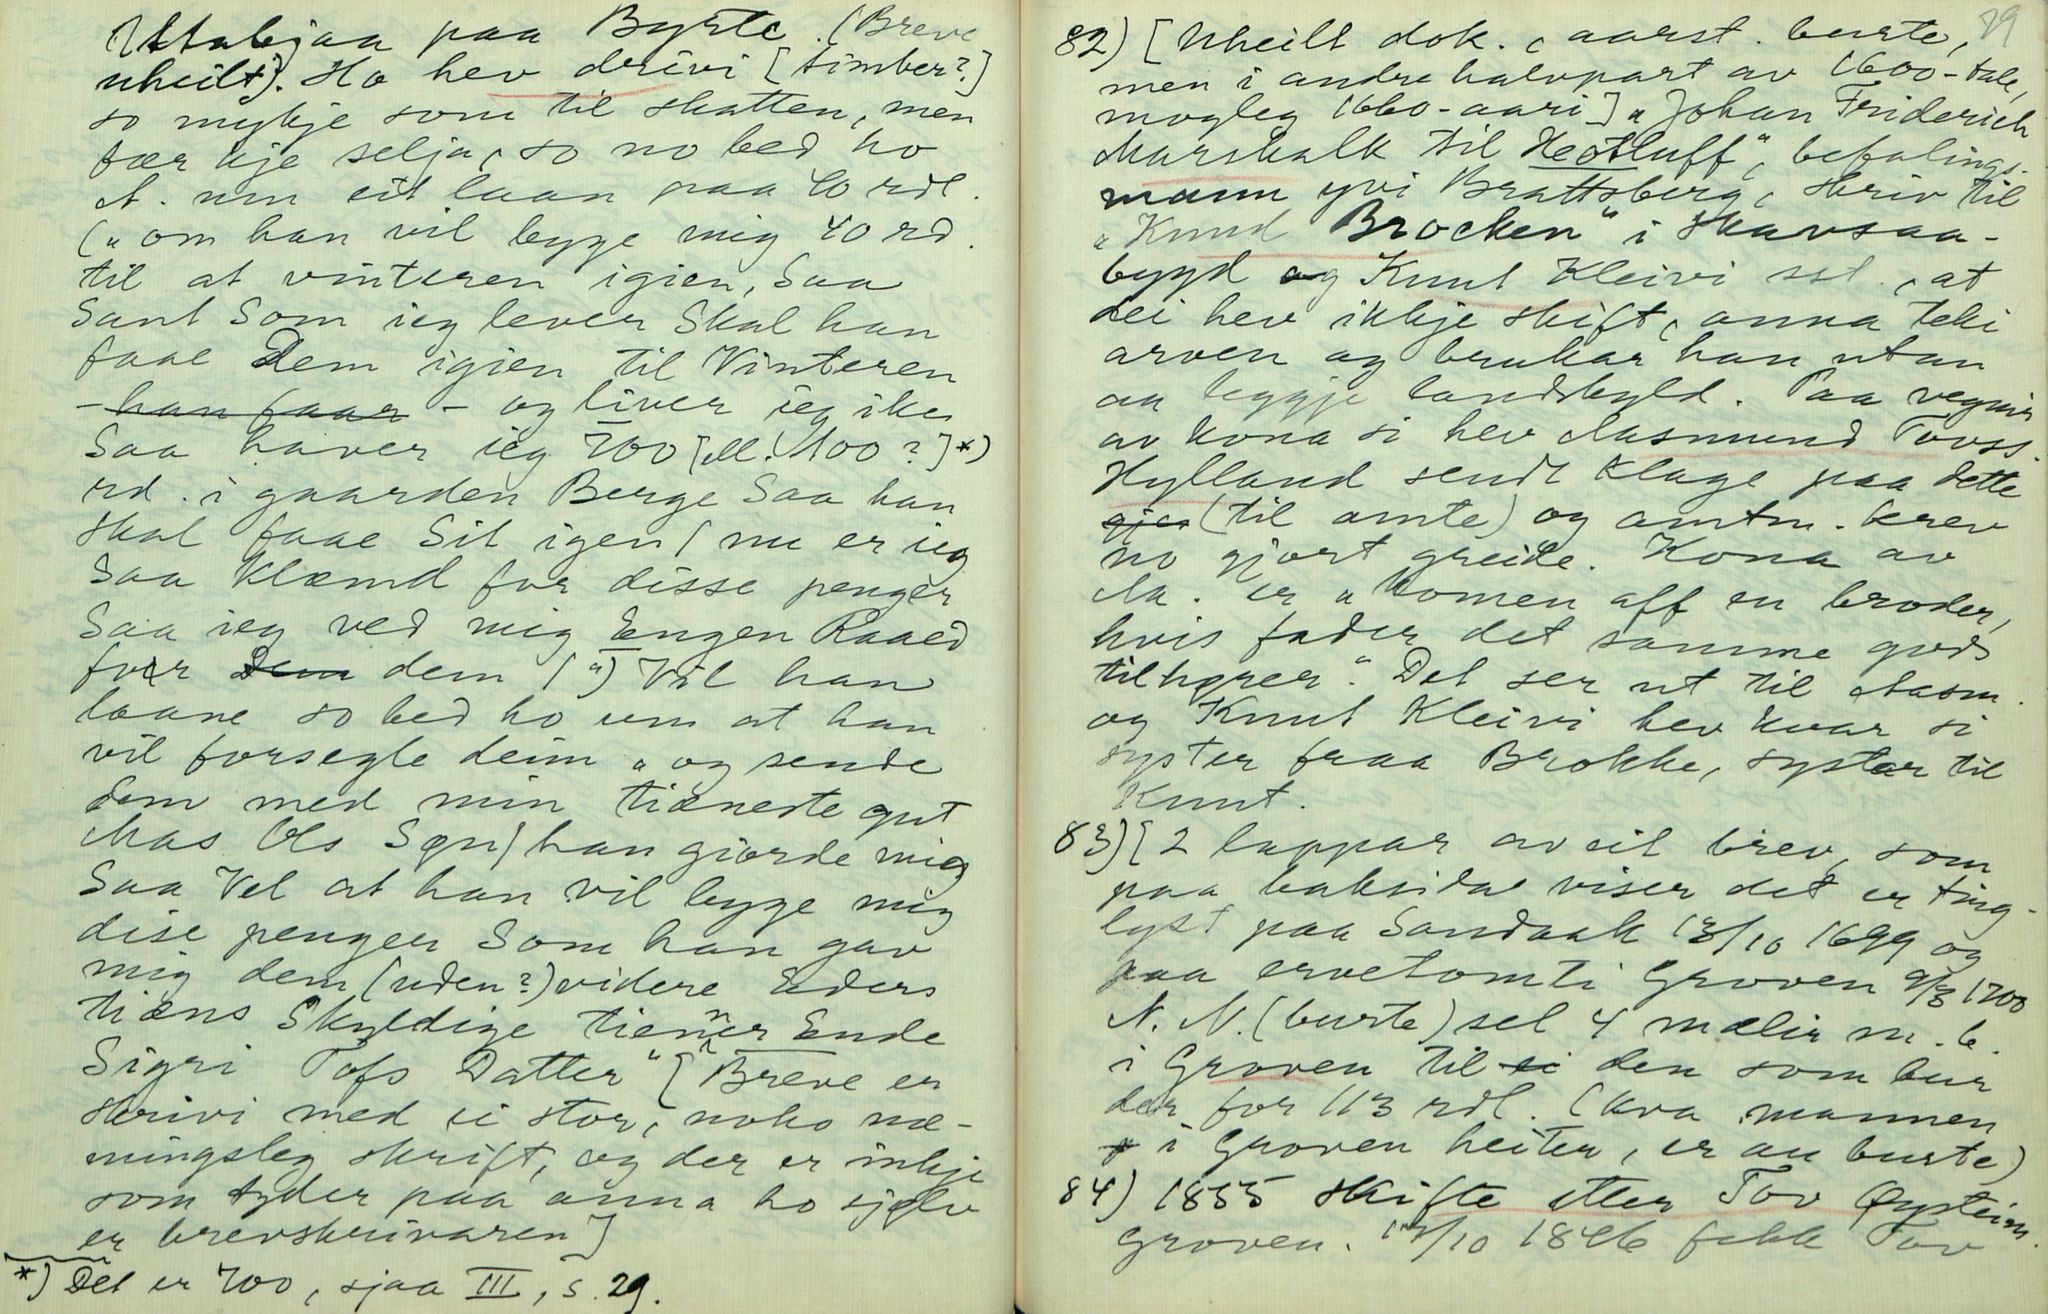 Stabjaa paa Byrte. (Breve
uheilt). Ho hev drivi [timber?]
so mykje som til skatten, men
fær kje selja, so no bed ho
A. um eit laan paa 40 rdl.
(„om han vil legge mig 40 rd.
til at vinteren igien, Saa
Sant Som ieg lever Skal han
faae Dem igien til Vinteren
- han faar - og liver ieg ike
Saa haver ieg 700 [ell. 100?] *)
rd. i gaarden Berge Saa han
skal faae Sit igen / nu er ieg
Saa Klæmd for disse penger
Saa ieg ved mig Engen Raaed
for Dem dem (") Vil han
laane so bed ho um at han
vil forsegle deim „og sende
dem med min tiæneste gut
Aas Ols Søn / han giorde mig
Saa Vel at han vil legge mig
dise penger Som han gav
mig dem (uden?) videre Eders
tiæns Skyldige tienner Ende
Sigri Tofs Datter" [Breve er
skrivi med ei stor, noko næ-
mingsleg skrift, og der er inkje
som tyder paa anna ho sjølv
er brevskrivaren]
*) Det er 700, sjaa III, s. 29.
79
82) [Uheilt dok., aarst. burte,
men i andre halvpart av 1600-tale,
mogleg 1660-aari] „Johan Friderich
Marskalk til Heotluff", befalings-
mann yvi Brattsberg, skriv til
„Knud Brocken" i Skavsaa-
bygd og Knut Kleivi sst., at
dei hev ikkje skift, anna teki
arven og brukar han utan
aa leggje landskyld. Paa vegnir
av kona si hev Aasmund Tovss.
Hylland sendt klage paa dette
gjer (til amte) og amtm. krev
no gjort greide. Kona av
Aa. er „komen aff en broder,
hvis fader det samme gods
tilhører". Det ser ut til Aasm.
og Knut Kleivi hev kvar si
syster fraa Brokke, systar til
Knut.
83) [2 lappar av eit brev, som
paa baksida viser det er ting-
lyst paa Sandaak 13/10 1699 og
paa ervetomti Groven 9/3 1700
N.N. (burte) sel 4 mælir m.b.
i Groven til ei den som bur
der for 113 rdl. (kva mannen
i Groven heiter, er au burte)
84) 1855 skifte etter Tov Øysteins.
Groven. 14/10 1846 fekk Tov